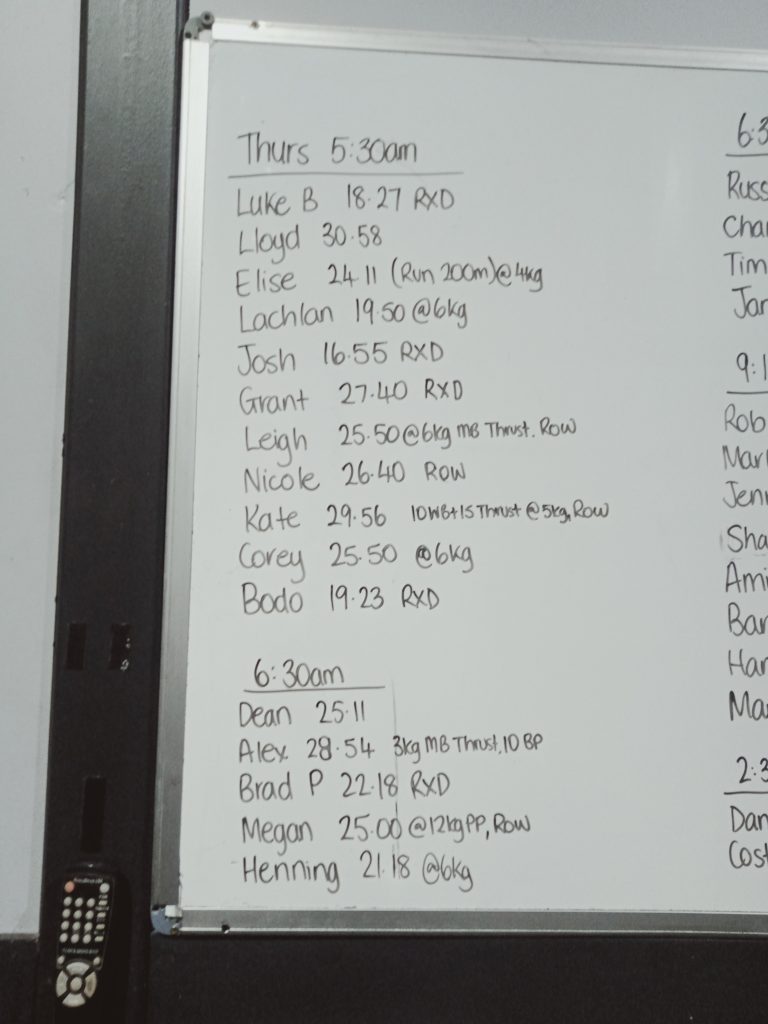 Thurs 5:30am
Luke B 18.27 RXD
Lloyd 30.58
Elise 24.11 (Run 200m)@4kg
Lachlan 19.50 @6kg
Josh 16.55 RXD
Grant 27.40 RXD
Leigh 25.50@6kg MB Thrust. Row
Nicole 26.40 Row
Kate 29.56 10WB+15 Thrust @5kg, Row
Corey 25.50 @6kg
Bodo 19.23 RXD
6:30am
Dean 25.11
Alex 28.54 3kg MB Thrust, 10 BP
Brad P 22.18 RXD
Megan 25.00 @12kg PP, Row
Henning 21.18 @6kg
6:3
Russ
Char
Tim
Jar
9:1
Rob
Mar
Jen
Sha
Ami
Bar
Har
Ma
2:3
Dan
Cost